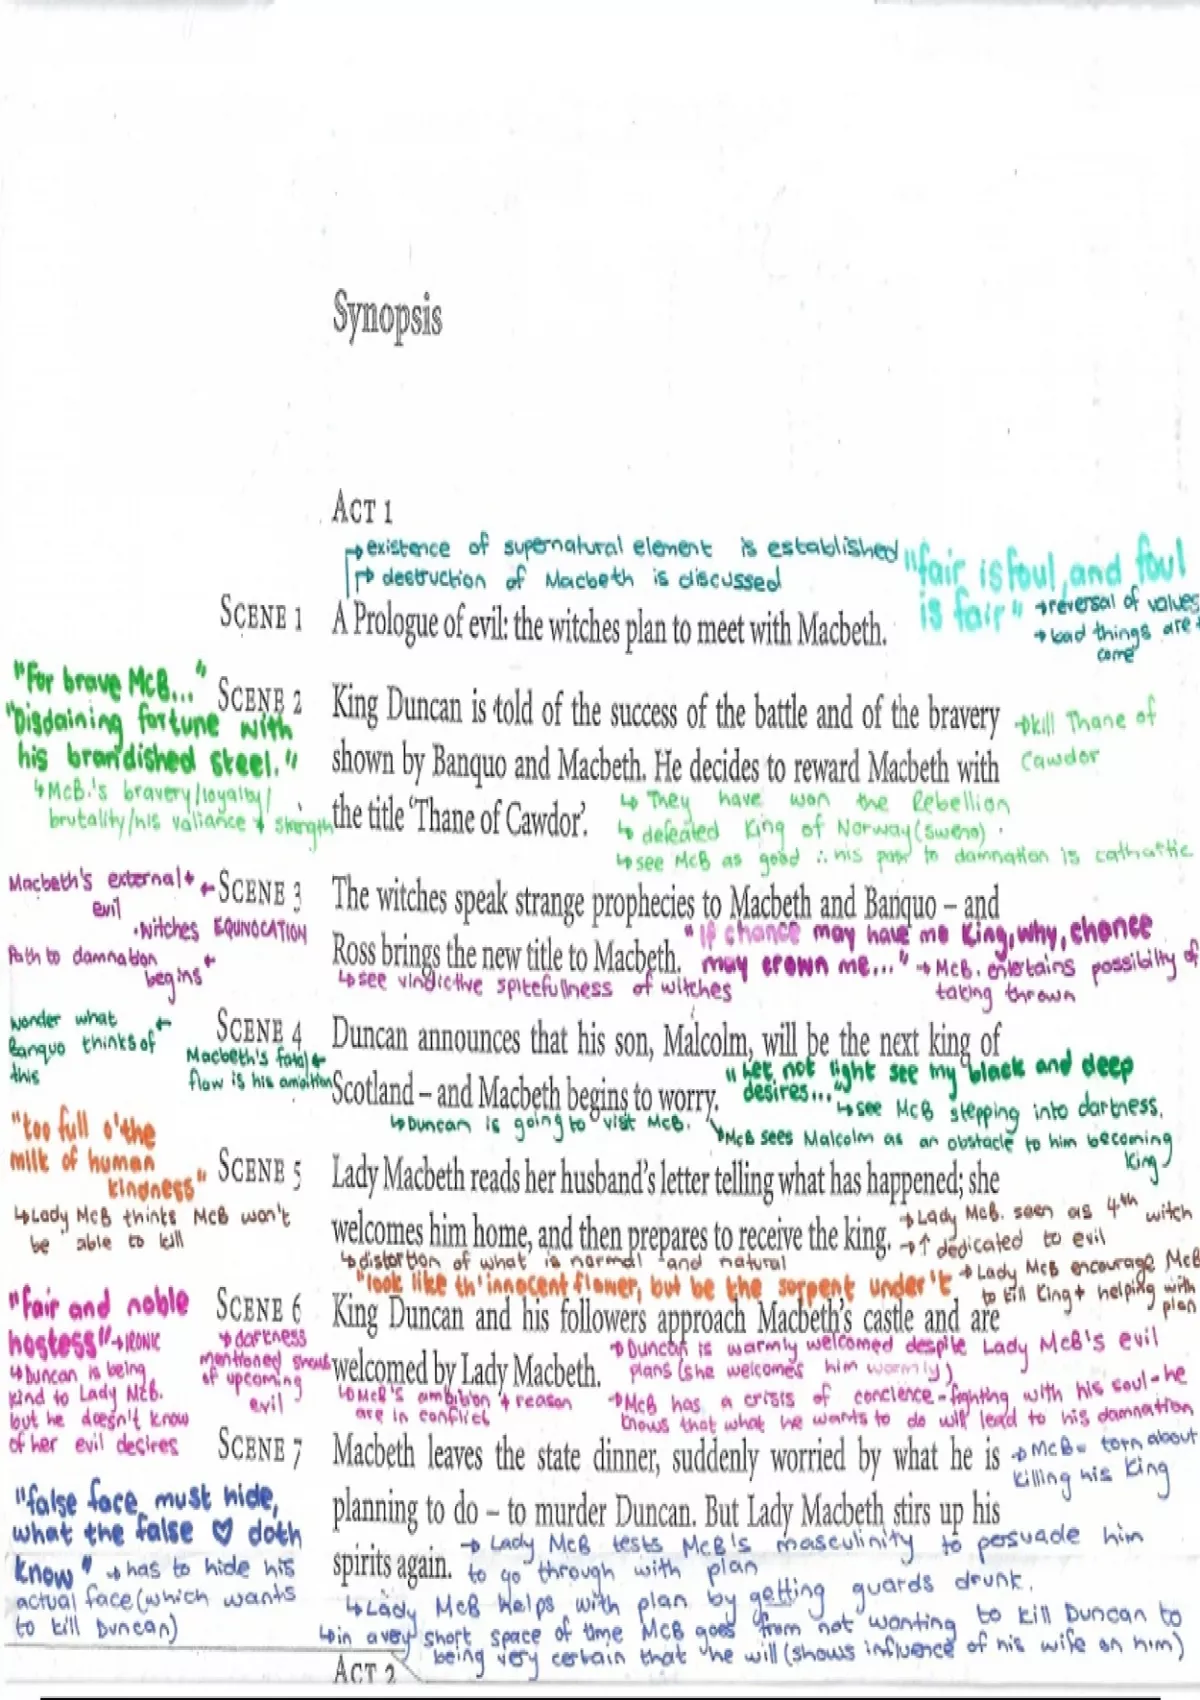 Synopsis
ACT 1
↳ existence of supernatural element is established
↳ destruction of Macbeth is discussed
"fair is foul, and foul
is fair"
→ reversal of values
→ bad things are to
come
SCENE 1 A Prologue of evil: the witches plan to meet with Macbeth.
"For brave McB..."
"Disdaining fortune with
his brandished steel."
↳ McB.'s bravery/loyalty/
brutality/his valiance + strength
SCENE 2 King Duncan is told of the success of the battle and of the bravery
shown by Banquo and Macbeth. He decides to reward Macbeth with
the title 'Thane of Cawdor'.
→ kill Thane of
Cawdor
↳ They have won the Rebellion
↳ defeated King of Norway (sweno).
↳ see McB as good ∴ his path to damnation is cathartic
Macbeth's external
evil
• witches EQUNOCATION
Path to damnation
begins
SCENE 3 The witches speak strange prophecies to Macbeth and Banquo – and
Ross brings the new title to Macbeth.
"If chance may have me King, why, chance
may crown me..."
→ McB. entertains possiblity of
taking thrown
↳ see vindictive spitefullness of witches
wonder what
Banquo thinks of
this
Macbeth's fatal
flaw is his ambition
SCENE 4 Duncan announces that his son, Malcolm, will be the next king of
Scotland – and Macbeth begins to worry.
"Let not light see my black and deep
desires..."
↳ see McB stepping into darkness.
↳ Duncan is going to visit McB.
McB sees Malcolm as an obstacle to him becoming
King
"too full o'the
milk of human
kindness"
↳ Lady McB thinks McB won't
be able to kill
SCENE 5 Lady Macbeth reads her husband's letter telling what has happened; she
welcomes him home, and then prepares to receive the king.
→ Lady McB. seen as 4th witch
→ ↑ dedicated to evil
↳ distortion of what is normal and natural
"look like th'innocent flower, but be the serpent under't
→ Lady McB encourage McB
to kill King + helping with
plan
"fair and noble
hostess" → IRONIC
↳ Duncan is being
kind to Lady McB.
but he doesn't know
of her evil desires
SCENE 6 King Duncan and his followers approach Macbeth's castle and are
welcomed by Lady Macbeth.
↳ darkness
mentioned shows
of upcoming
evil
→ Duncan is warmly welcomed despite Lady McB's evil
plans (she welcomes him warmly)
↳ McB's ambition + reason
are in conflict
→ McB has a crisis of concience - fighting with his soul - he
knows that what he wants to do will lead to his damnation
SCENE 7 Macbeth leaves the state dinner, suddenly worried by what he is
planning to do – to murder Duncan. But Lady Macbeth stirs up his
spirits again.
→ McB = torn about
killing his King
"false face must hide,
what the false ♡ doth
know"
→ has to hide his
actual face (which wants
to kill Duncan)
→ Lady McB tests McB's masculinity to persuade him
to go through with plan
↳ Lady McB helps with plan by getting guards drunk.
↳ in a very short space of time McB goes from not wanting to kill Duncan to
being very certain that he will (shows influence of his wife on him)
ACT 2